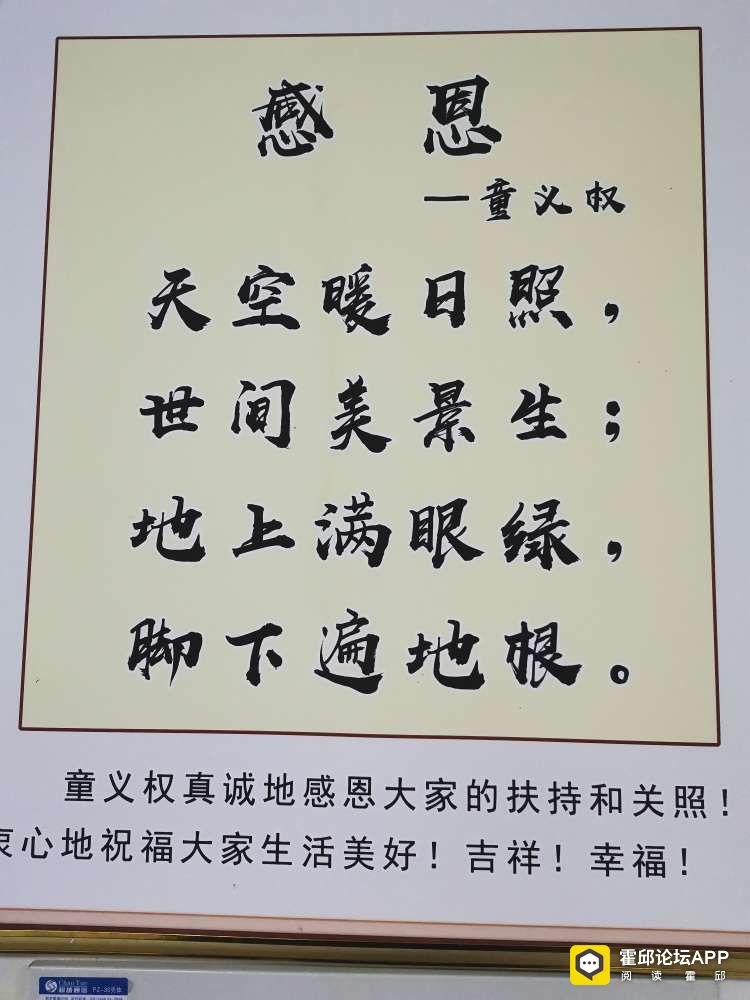 感恩
—童义权
天空暖日照，
世间美景生；
地上满眼绿，
脚下遍地根。
童义权真诚地感恩大家的扶持和关照！
衷心地祝福大家生活美好！吉祥！幸福！
Chao Yue
超越通信 PZ-30壳体
霍邱论坛APP
阅读霍邱